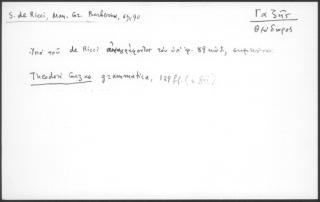 S. de Ricci, Mon. Gr. Barberini, 63,90
Γαζῆς
Θεόδωρος
Ὑπὸ τοῦ de Ricci τὸν ὑπ' ἀρ. 89 κώδ.
Theodori Gazae grammatica, 129 ff.